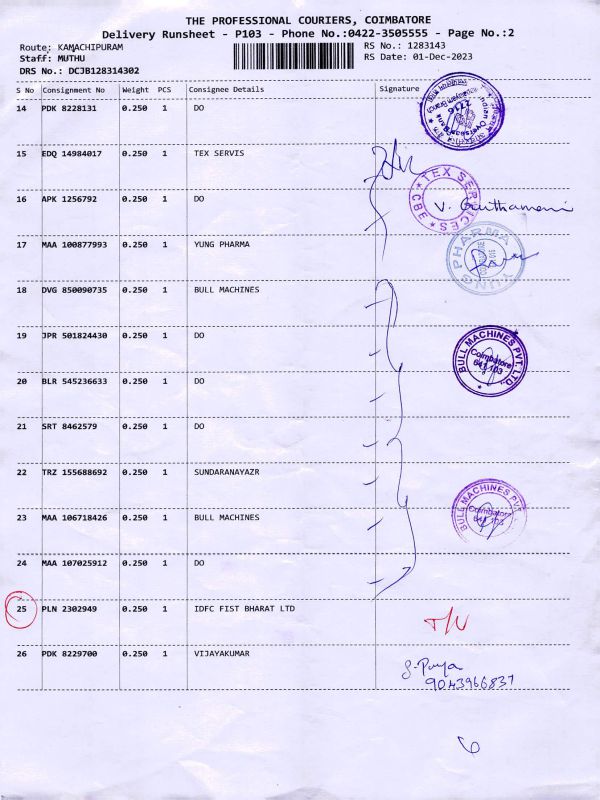 THE PROFESSIONAL COURIERS, COIMBATORE
Delivery Runsheet - P103 - Phone No.:0422-3505555 - Page No.:2
Route: KAMACHIPURAM
RS No.: 1283143
Staff: MUTHU
RS Date: 01-Dec-2023
DRS No.: DCJB128314302
S No Consignment No Weight PCS Consignee Details Signature
14 PDK 8228131 0.250 1 DO
Indian Overseas Bank
2716
15 EDQ 14984017 0.250 1 TEX SERVIS
TEX SERVICES * CBE *
16 APK 1256792 0.250 1 DO
V. Gunthamani
17 MAA 100877993 0.250 1 YUNG PHARMA
YUNG PHARMA
COIMBATORE
18 DVG 850090735 0.250 1 BULL MACHINES
19 JPR 501824430 0.250 1 DO
BULL MACHINES PVT. LTD. *
Coimbatore
641 103
20 BLR 545236633 0.250 1 DO
21 SRT 8462579 0.250 1 DO
22 TRZ 155688692 0.250 1 SUNDARANAYAZR
23 MAA 106718426 0.250 1 BULL MACHINES
BULL MACHINES PVT
Coimbatore
641 103
24 MAA 107025912 0.250 1 DO
25 PLN 2302949 0.250 1 IDFC FIST BHARAT LTD
26 PDK 8229700 0.250 1 VIJAYAKUMAR
9043966837